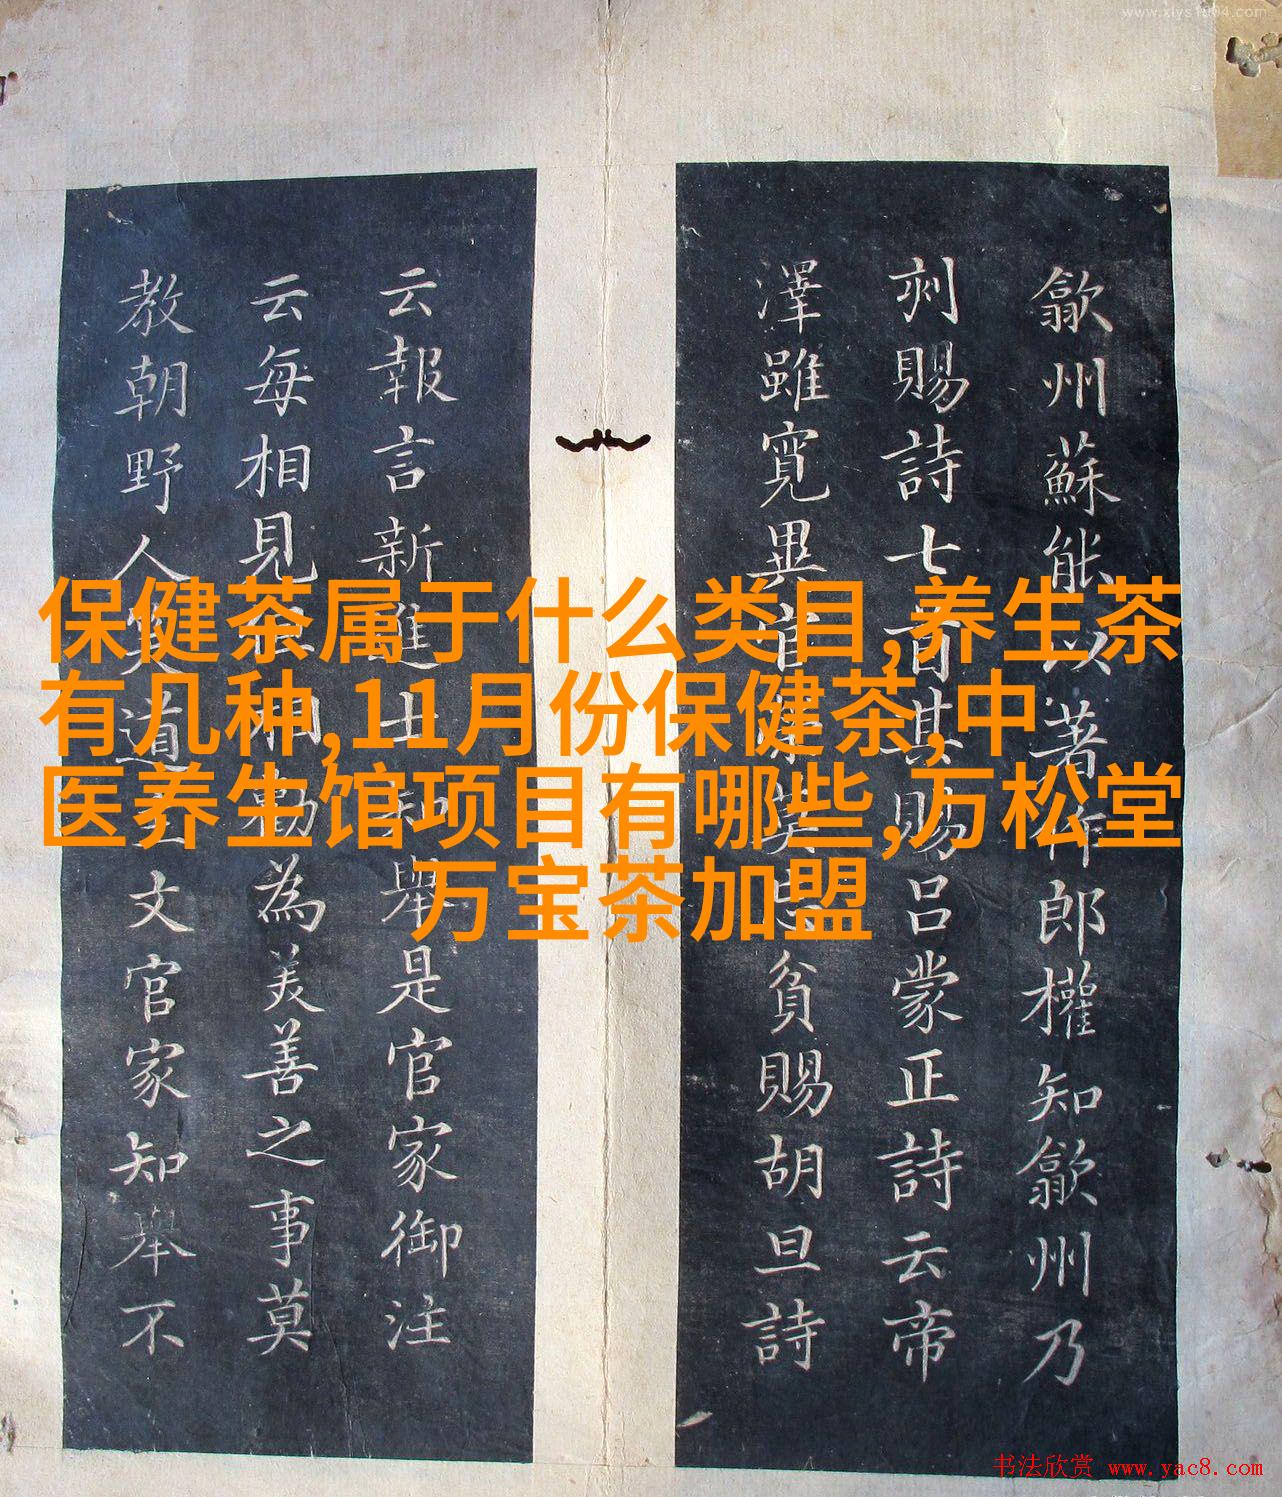 www.xlys1904.com
保健茶属于什么类目,养生茶
有几种,11月份保健茶,中
医养生馆项目有哪些,万松堂
万宝茶加盟
歙州蘇能以著作郎權知歙州乃
刺賜詩七首其賜呂蒙正詩云帝
澤雖寬異貧賜胡旦詩
云報言新進士知舉是官家御注
云每相見相勸為美善之事莫
教朝野人笑道文官家知舉不
书法欣赏 www.yac8.com